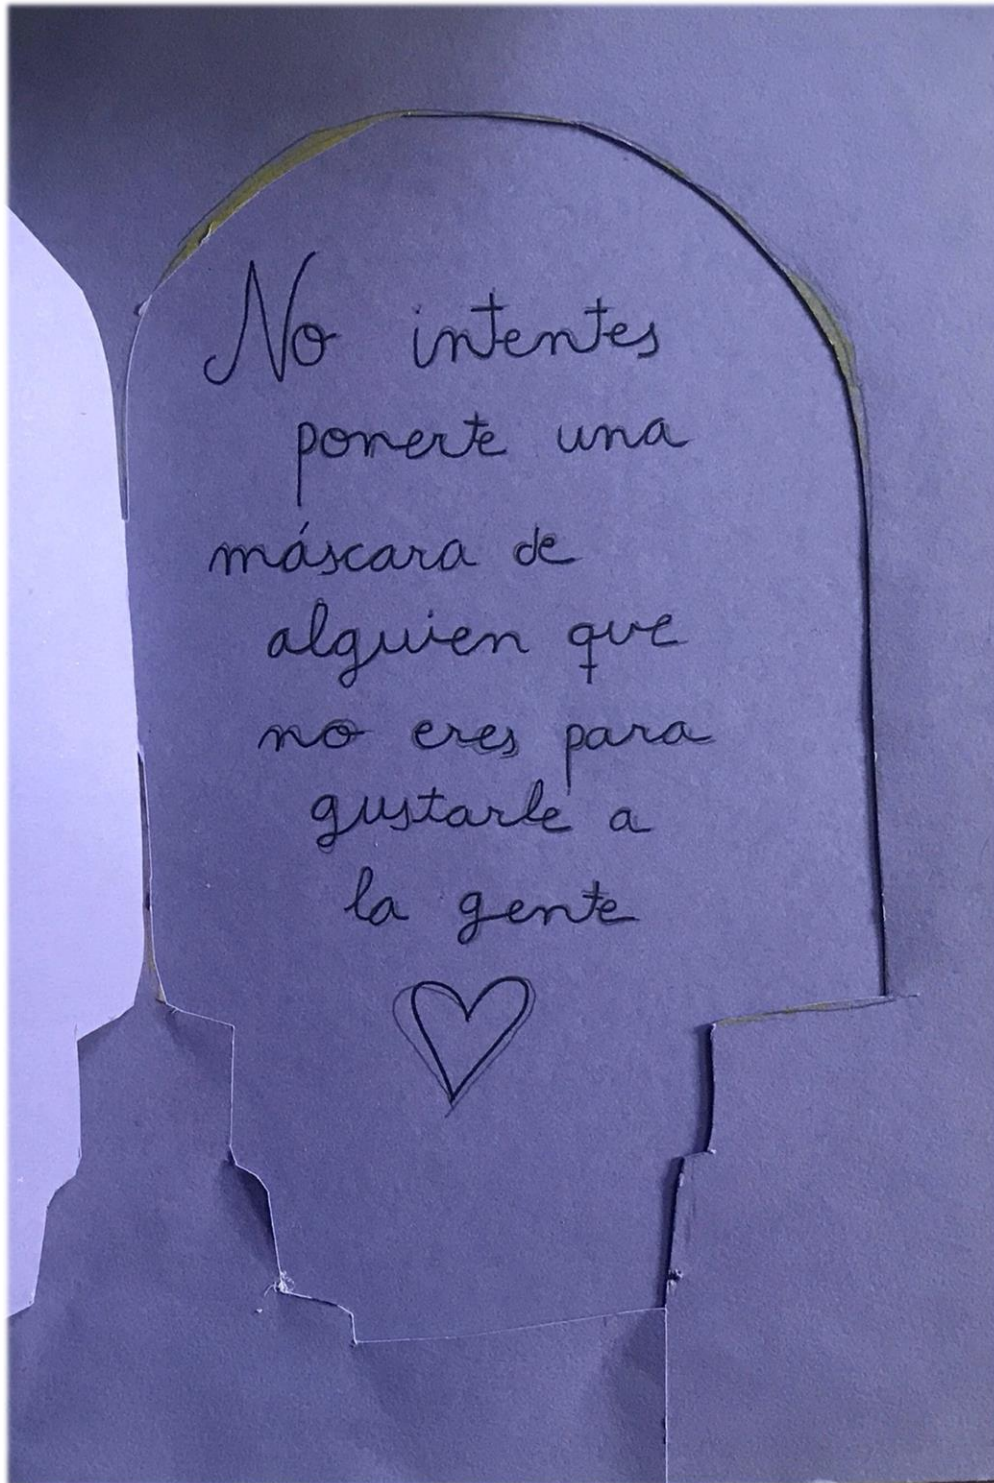 No intentes
ponerte una
máscara de
alguien que
no eres para
gustarle a
la gente